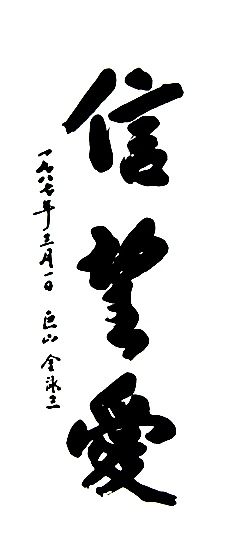 信望愛
一九八七年三月一日 巨山 金泳三